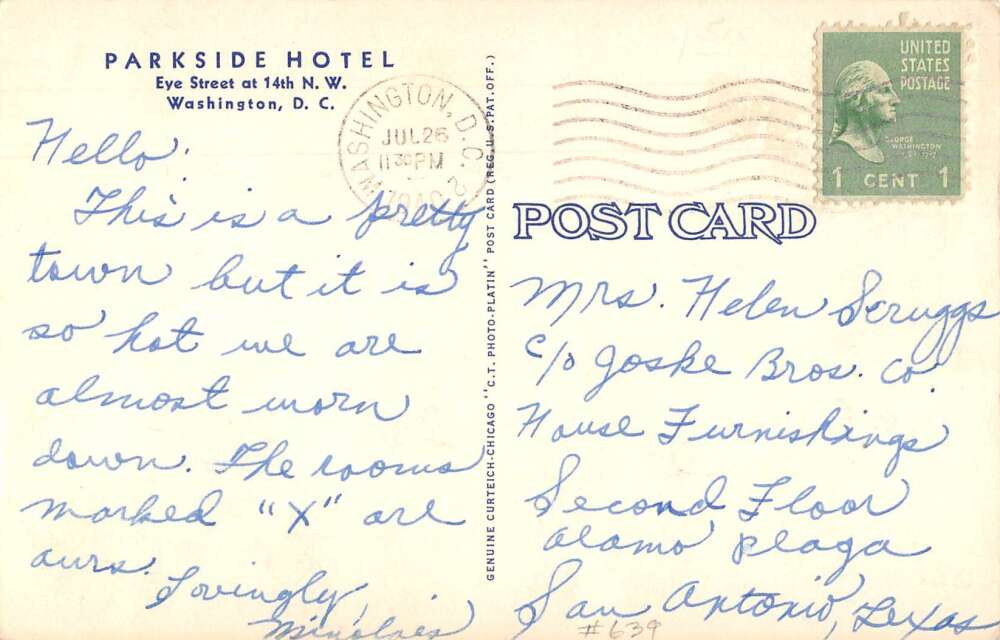 PARKSIDE HOTEL
Eye Street at 14th N. W.
Washington, D. C.
WASHINGTON, D.C. 2
JUL 26
11 30 PM
Hello.
This is a pretty
town but it is
so hot we are
almost worn
down. The rooms
marked "X" are
ours.
Lovingly,
GENUINE CURTEICH-CHICAGO "C.T. PHOTO-PLATIN" POST CARD (REG. U.S. PAT. OFF.)
UNITED
STATES
POSTAGE
GEORGE
WASHINGTON
1 CENT 1
POST CARD
Mrs. Helen Scruggs
c/o Joske Bros. Co.
House Furnishings
Second Floor
Alamo Plaza
San Antonio, Texas
#639